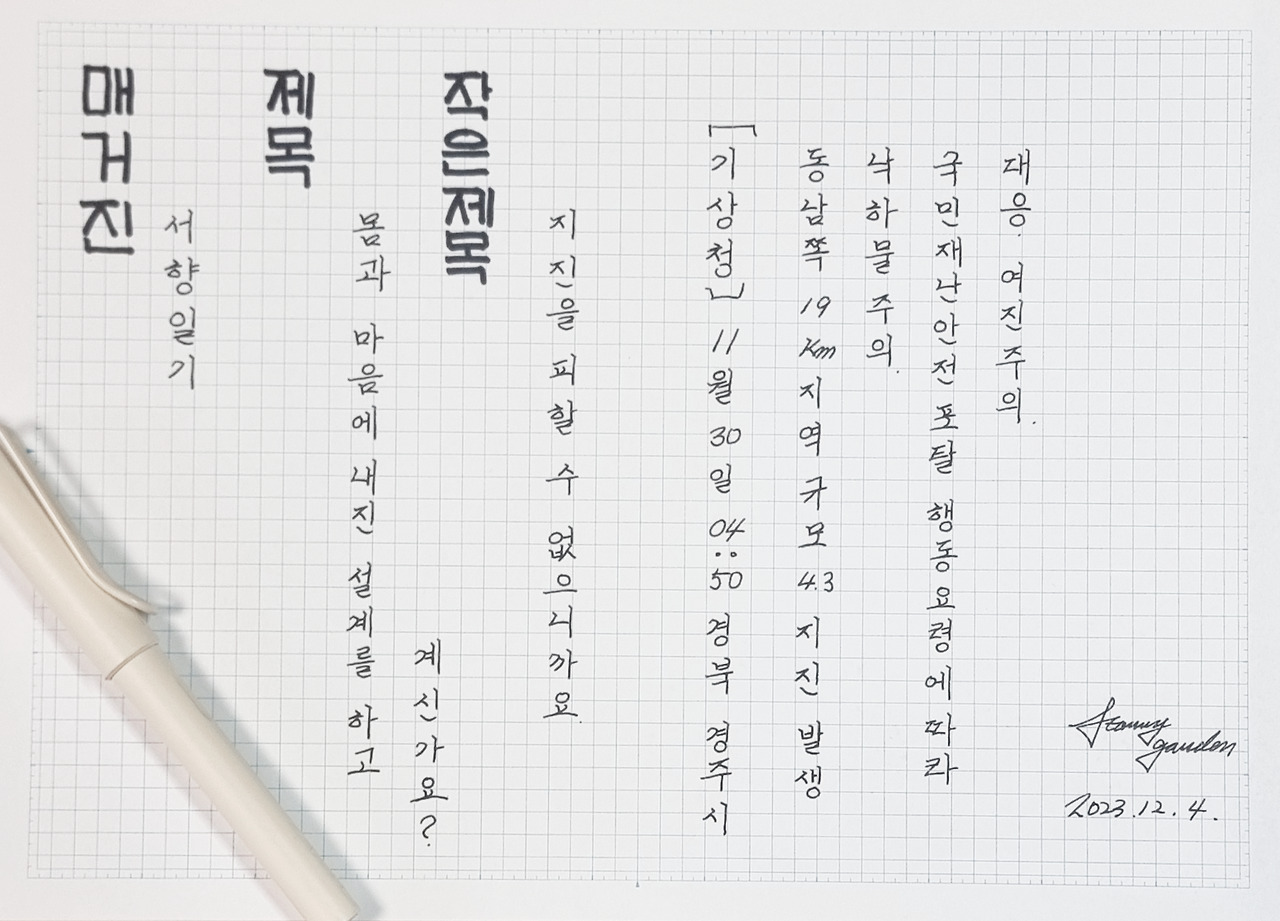 매거진
서향일기
제목
몸과 마음에 내진 설계를 하고
계신가요?
작은제목
지진을 피할 수 없으니까요.
[기상청] 11월 30일 04:50 경북 경주시
동남쪽 19km 지역 규모 4.3 지진 발생
낙하물 주의.
국민재난안전포탈 행동요령에 따라
대응. 여진주의.
2023.12.4.